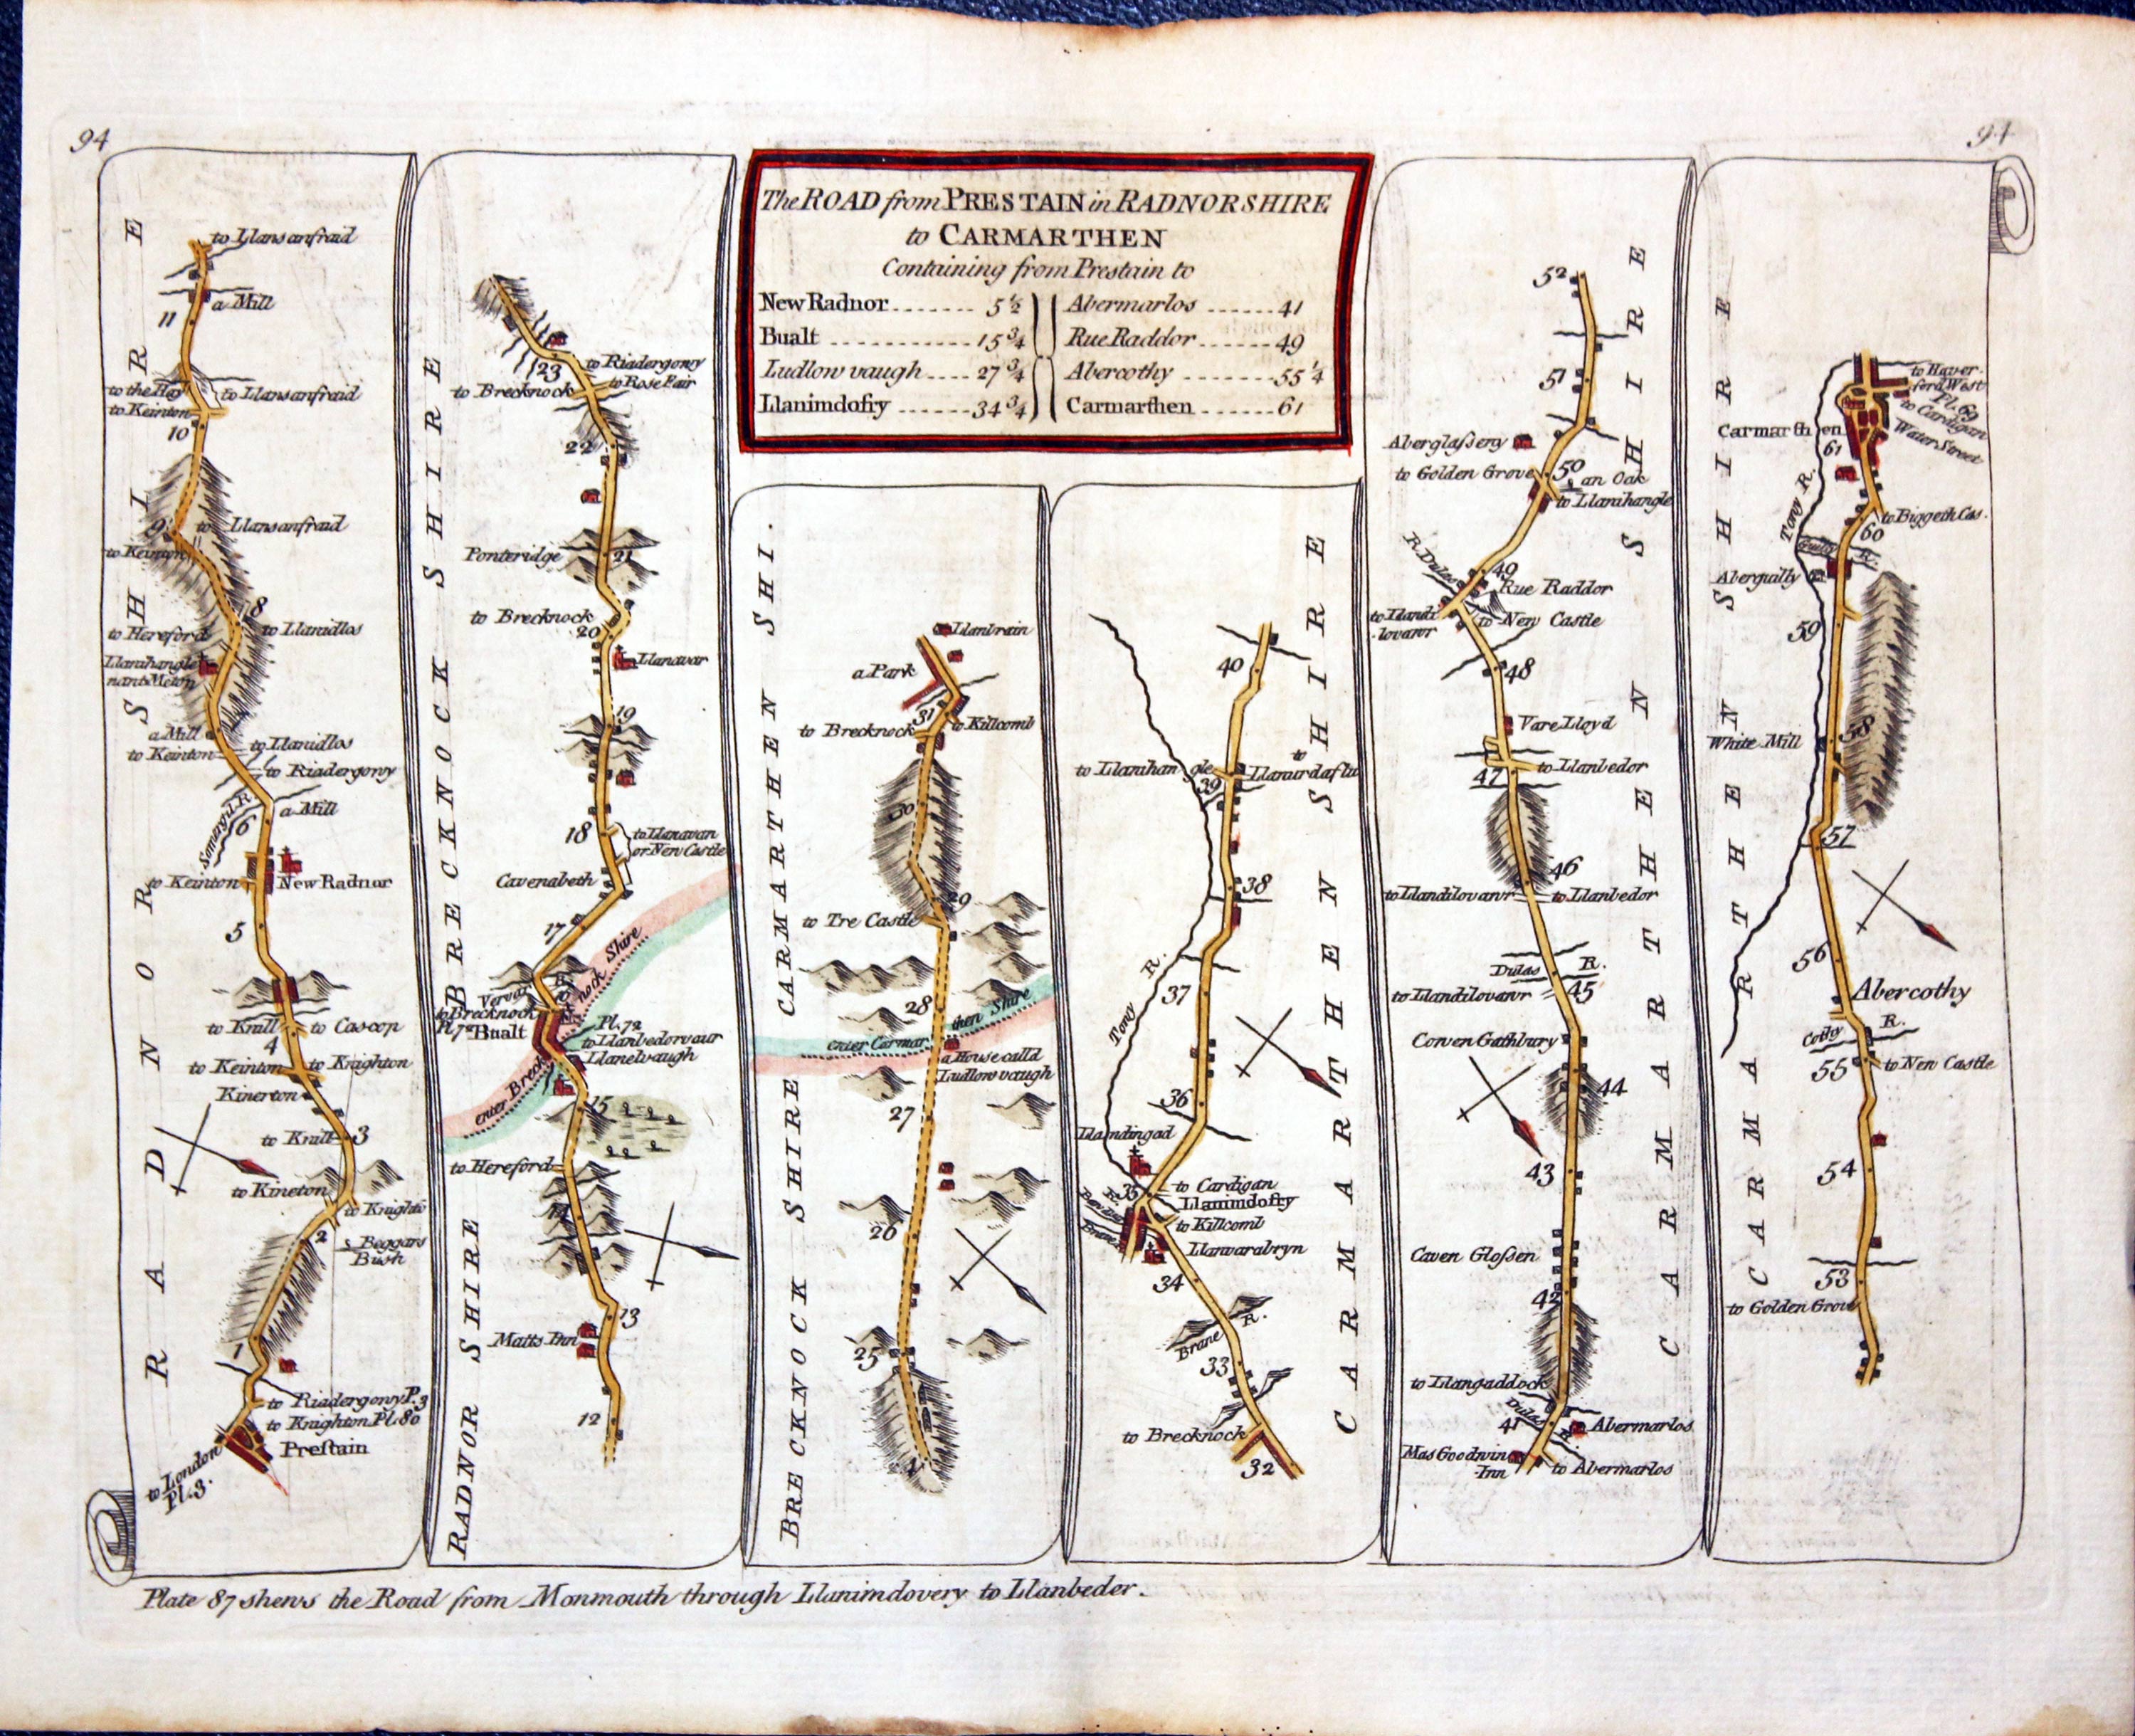 94
94
The ROAD from PRESTAIN in RADNORSHIRE
to CARMARTHEN
Containing from Prestain to
New Radnor ....... 5½
Bualt ............ 15¾
Ludlow vaugh .... 27¾
Llanimdofry ...... 34¾
Abermarlos ...... 41
Rue Raddor ...... 49
Abercothy ....... 55¼
Carmarthen ...... 61
RADNOR SHIRE
to Llansanfraid
a Mill
11
to the Hay
to Llansanfraid
to Keinton
10
9
to Llansanfraid
to Keinton
8
to Hereford
to Llanidlos
Llanihangle
nant Melon
a Mill
to Llanidlos
to Keinton
to Riadergowy
Somergil R.
a Mill
6
to Keinton
New Radnor
5
to Knill
to Cascop
4
to Keinton
to Knighton
Kinerton
to Knill
3
to Kineton
to Knighto
2
a Beggars
Bush
1
to Riadergowy P. 3
to Knighton Pl. 80
Prestain
to London
Pl. 3.
BRECKNOCK SHIRE
RADNOR SHIRE
23
to Riadergowy
to Brecknock
to Rose Fair
22
Ponteridge
21
to Brecknock
20
Llanavar
19
18
to Llanavan
or New Castle
Cavenabeth
17
enter Brecknock Shire
to Brecknock
Pl. 72
Bualt
Pl. 72
to Llanbedorvaur
Llanelvaugh
15
to Hereford
14
13
Matts Inn
12
BRECKNOCK SHIRE
CARMARTHEN SHI.
Llanbrain
a Park
31
to Brecknock
to Killcomb
30
29
to Tre Castle
28
enter Carmarthen Shire
a House call'd
Ludlow vaugh
27
26
25
CARMARTHEN SHIRE
40
to Llanihangle
to
Llanurdaflu
39
38
Towy R.
37
36
Llandingad
35
to Cardigan
Llanimdofry
to Killcomb
Llanvarabryn
34
Brane R.
33
to Brecknock
32
CARMARTHEN SHIRE
52
51
Aberglasseny
to Golden Grove
50
an Oak
to Llanihangle
R. Dulas
49
Rue Raddor
to Llandi
lovawr
to New Castle
48
Vare Lloyd
47
to Llanbedor
46
to Llandilovawr
to Llanbedor
Dulas R.
to Llandilovawr
45
Corven Gathbury
44
43
Caven Glossen
42
to Llangaddock
Dulas R.
41
Abermarlos
Mas Goodwin
Inn
to Abermarlos
CARMARTHEN SHIRE
to Haver-
ford West
Pl. 69
to Cardigan
Water Street
Carmarthen
61
Towy R.
to Biggeth Cas.
60
Guilly R.
Aberguilly
59
58
White Mill
57
56
Abercothy
Cothy R.
55
to New Castle
54
53
to Golden Grove
Plate 87 shews the Road from Monmouth through Llanimdovery to Llanbeder.